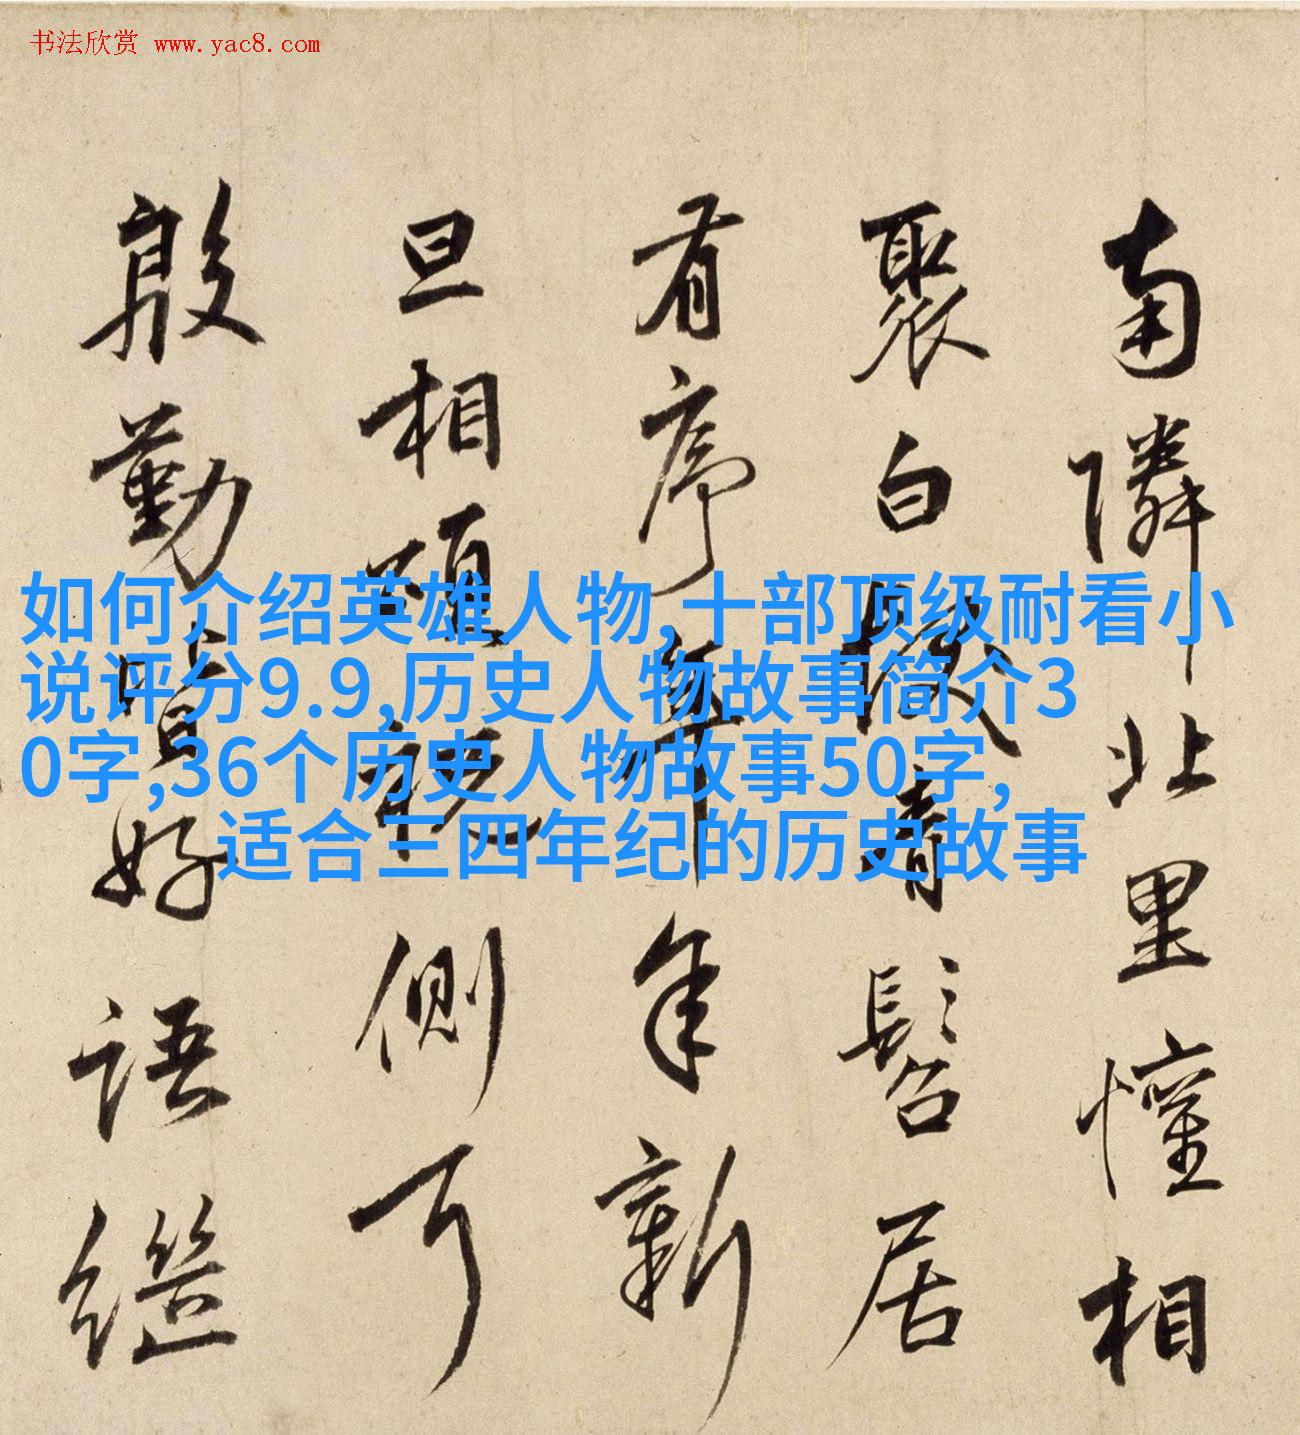 书法欣赏 www.yac8.com
如何介绍英雄人物,十部顶级耐看小
说评分9.9,历史人物故事简介3
0字,36个历史人物故事50字,
适合三四年纪的历史故事
南隣北里懽相
聚白髮青髫居
有序年年年新
旦相隨祝側耳
殷勤皆好語繼